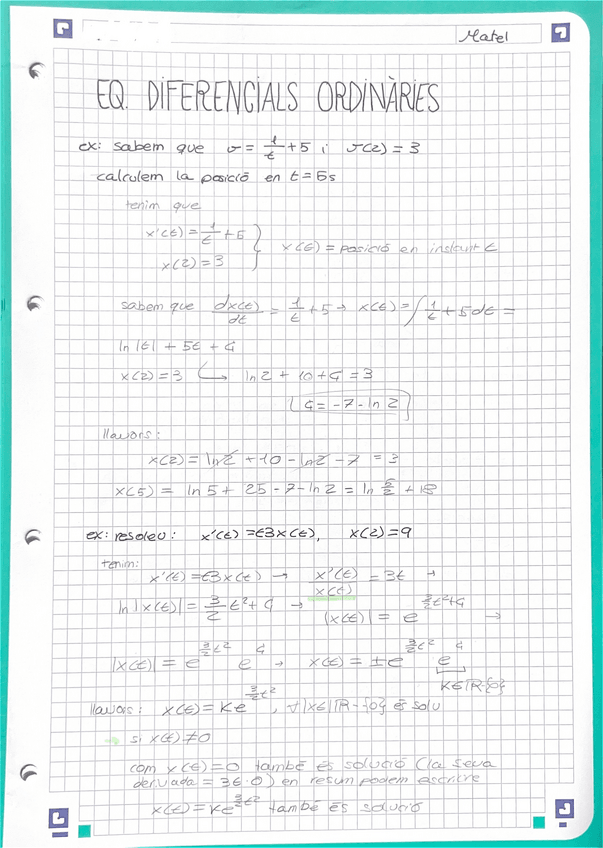 Matel
EQ. DIFERENCIALS ORDINÀRIES
ex: sabem que v = 1/t + 5 i v(2) = 3
calculem la posició en t = 5s
tenim que
x'(t) = 1/t + 5
x(2) = 3 } x(t) = posició en instant t
sabem que dx(t)/dt = 1/t + 5 → x(t) = ∫ 1/t + 5 dt =
ln |t| + 5t + G
x(2) = 3 ↪ ln 2 + 10 + G = 3
G = -7 - ln 2
llavors:
x(2) = ln 2 + 10 - ln 2 - 7 = 3
x(5) = ln 5 + 25 - 7 - ln 2 = ln 5/2 + 18
ex: resoleu: x'(t) = t3x(t), x(2) = 9
tenim:
x'(t) = t3x(t) → x'(t)/x(t) = 3t →
ln |x(t)| = 3/2 t² + G → |x(t)| = e^(3/2 t² + G) →
|x(t)| = e^(3/2 t²) e^G → x(t) = ± e^(3/2 t²) e^G
K∈ℝ-{0}
llavors: x(t) = Ke^(3/2 t²), ∀K∈ℝ-{0} és solu
→ si x(t) ≠ 0
com x(t) = 0 també és solució (la seva
derivada = 3t·0) en resum podem escriure
x(t) = Ke^(3/2 t²) també és solució